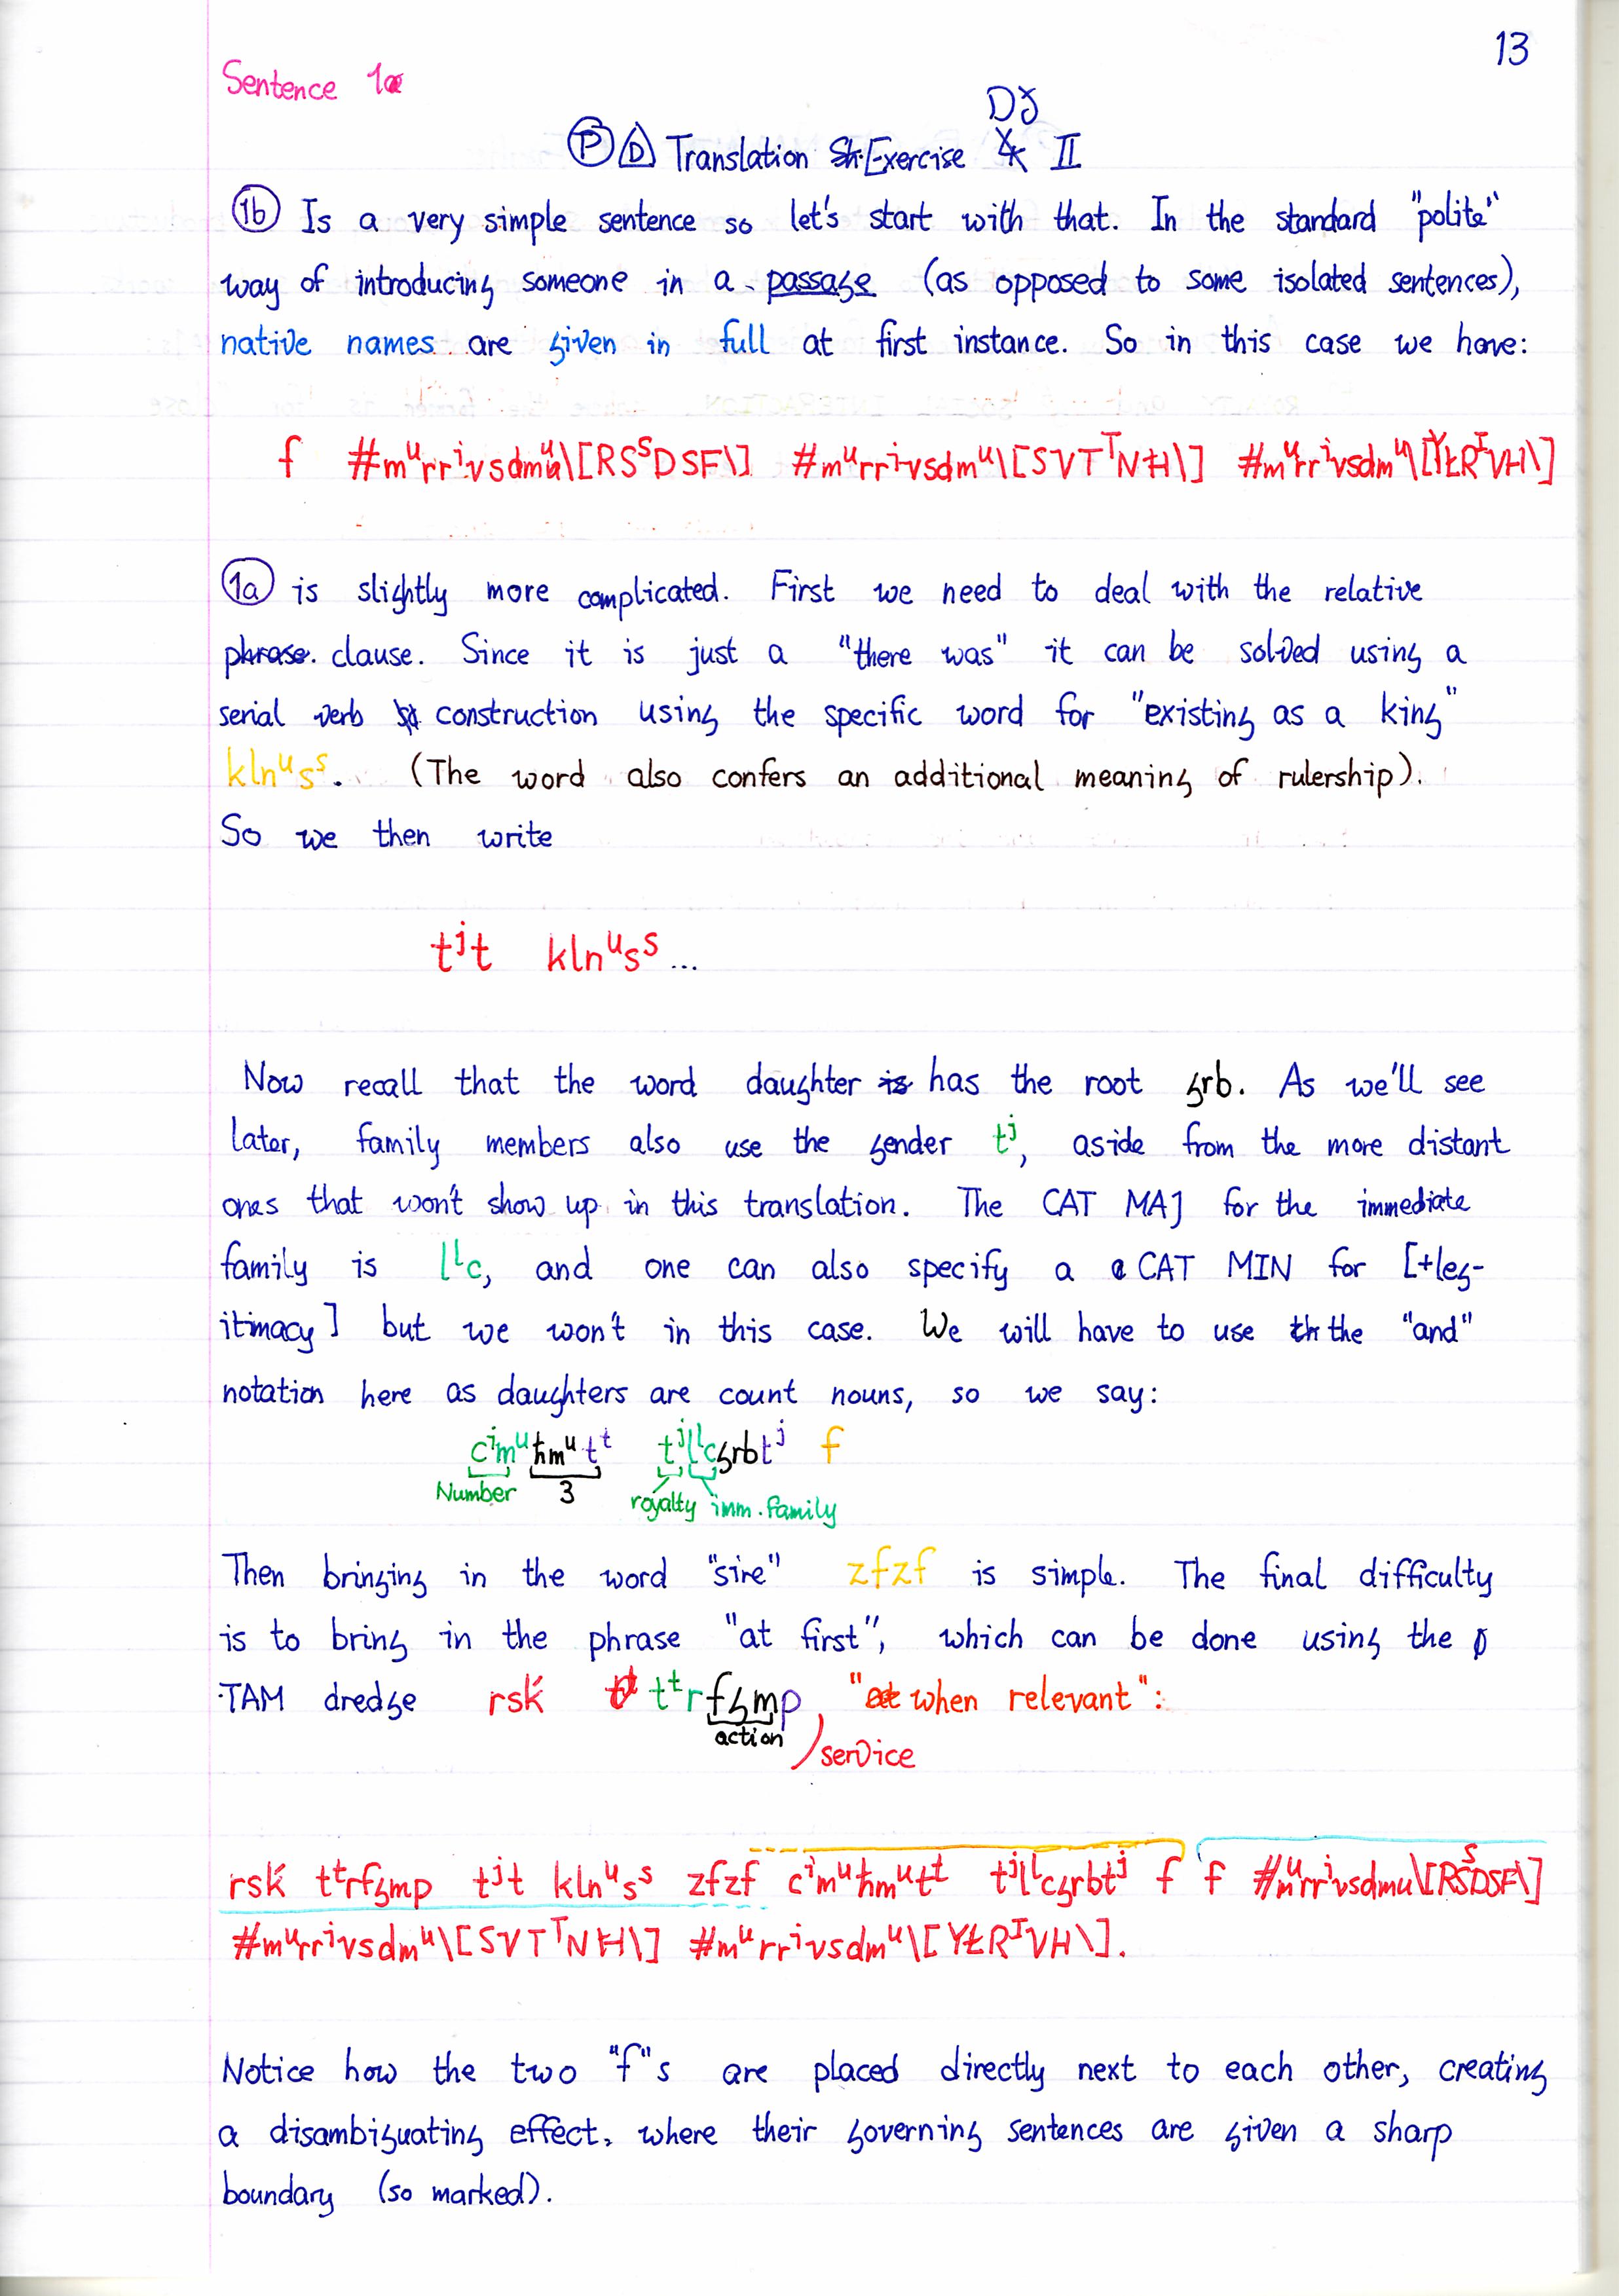 13
Sentence 1a
DJ
Ⓟ D Translation Exercise II
1b Is a very simple sentence so let's start with that. In the standard "polite"
way of introducing someone in a passage (as opposed to some isolated sentences),
native names are given in full at first instance. So in this case we have:
f #mᵘrrⁱvsdmᵘ\[RSˢDSF\] #mᵘrrⁱvsdmᵘ\[SVTᵀNĦ\] #mᵘrrⁱvsdmᵘ\[YŁRᴵVH\]
1a is slightly more complicated. First we need to deal with the relative
phrase. clause. Since it is just a "there was" it can be solved using a
serial verb construction using the specific word for "existing as a king"
klnᵘsˢ. (The word also confers an additional meaning of rulership).
So we then write
tʲt klnᵘsˢ...
Now recall that the word daughter is has the root grb. As we'll see
later, family members also use the gender tʲ, aside from the more distant
ones that won't show up in this translation. The CAT MAJ for the immediate
family is lᴸc, and one can also specify a CAT MIN for [+leg-
itimacy] but we won't in this case. We will have to use th the "and"
notation here as daughters are count nouns, so we say:
cⁱmᵘħmᵘtᵗ tʲlᴸcgrbtʲ f
Number 3 royalty imm. family
Then bringing in the word "sire" zfzf is simple. The final difficulty
is to bring in the phrase "at first", which can be done using the
TAM dredge rsḱ tᵗrfgmp "at when relevant":
action service
rsḱ tᵗrfgmp tʲt klnᵘsˢ zfzf cⁱmᵘħmᵘtᵗ tʲlᴸcgrbtʲ f f #mᵘrrⁱvsdmu\[RSˢDSF\]
#mᵘrrⁱvsdmᵘ\[SVTᵀNĦ\] #mᵘrrⁱvsdmᵘ\[YŁRᴵVH\].
Notice how the two "f"s are placed directly next to each other, creating
a disambiguating effect, where their governing sentences are given a sharp
boundary (so marked).